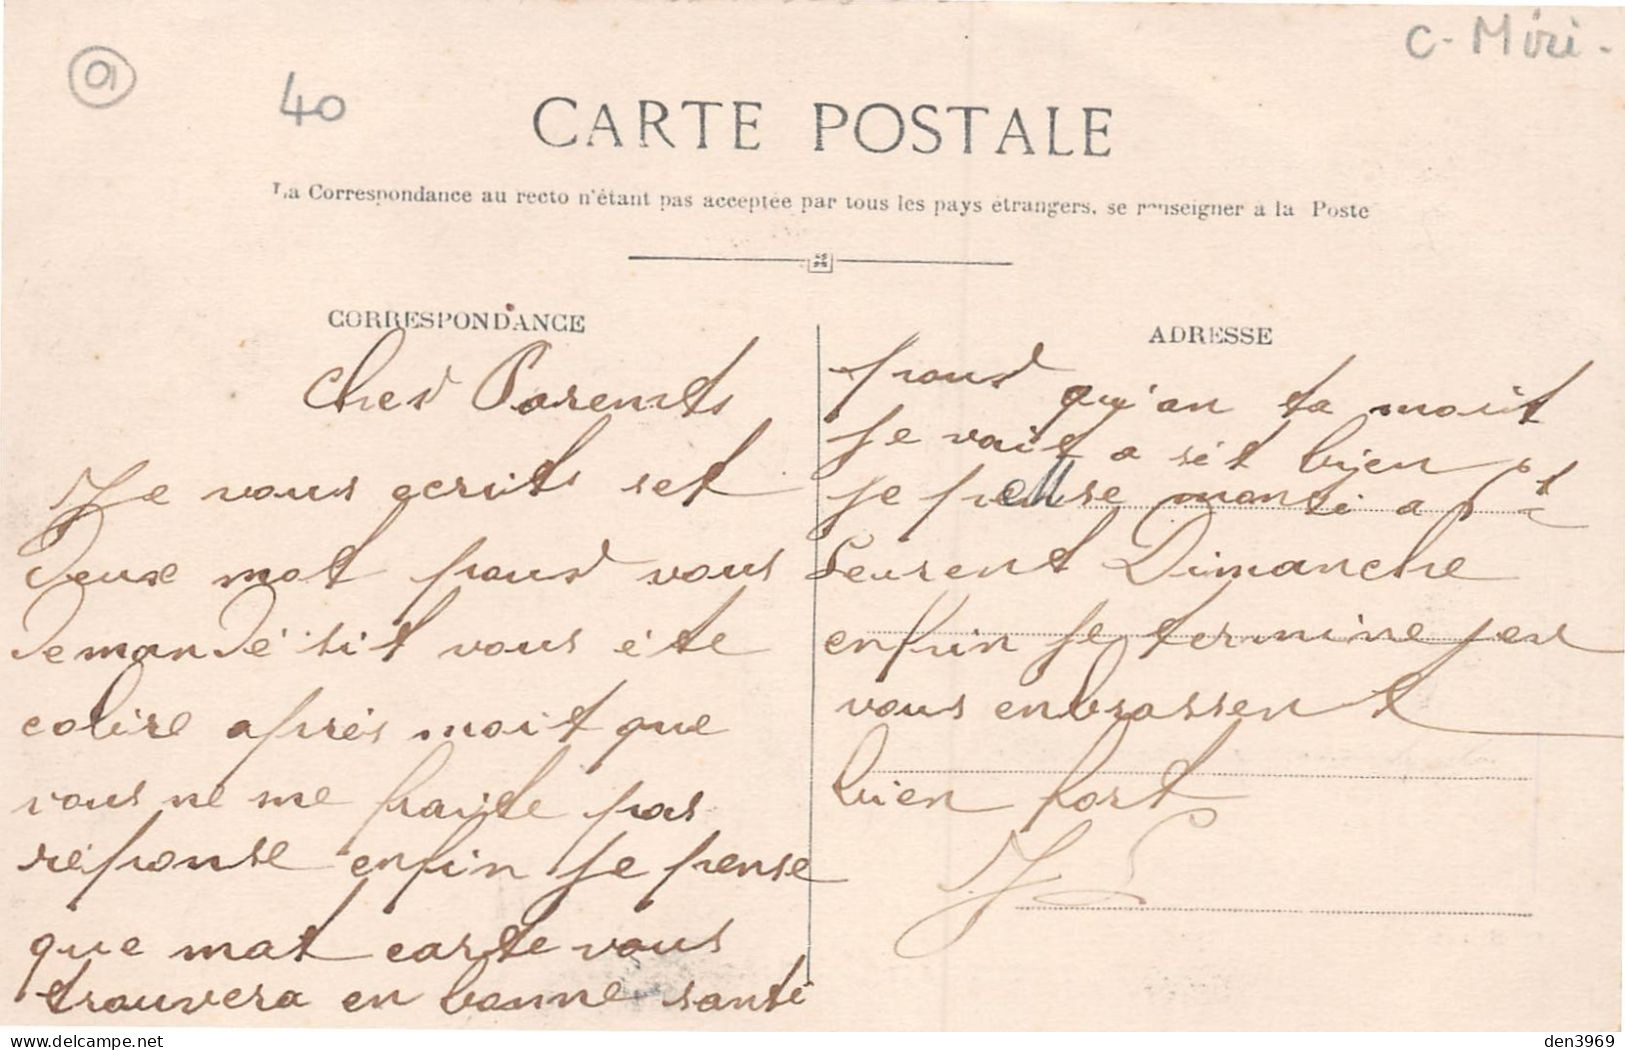 01
40
C-Miri-
CARTE POSTALE
La Correspondance au recto n'étant pas acceptée par tous les pays étrangers, se renseigner a la Poste
CORRESPONDANCE
Cher Parents
Je vous ecrits set
deux mot pour vous
demandé sit vous éte
colire après moit que
vous ne me fraite pas
réponse enfin je pense
que mat carte vous
trouvera en bonne santé
ADRESSE
pour qu'an ta moit
Je vait a sét bien
je pense monté a St
Leurent Dimanche
enfin je termine jeu
vous enbrassent
bien fort
den3969